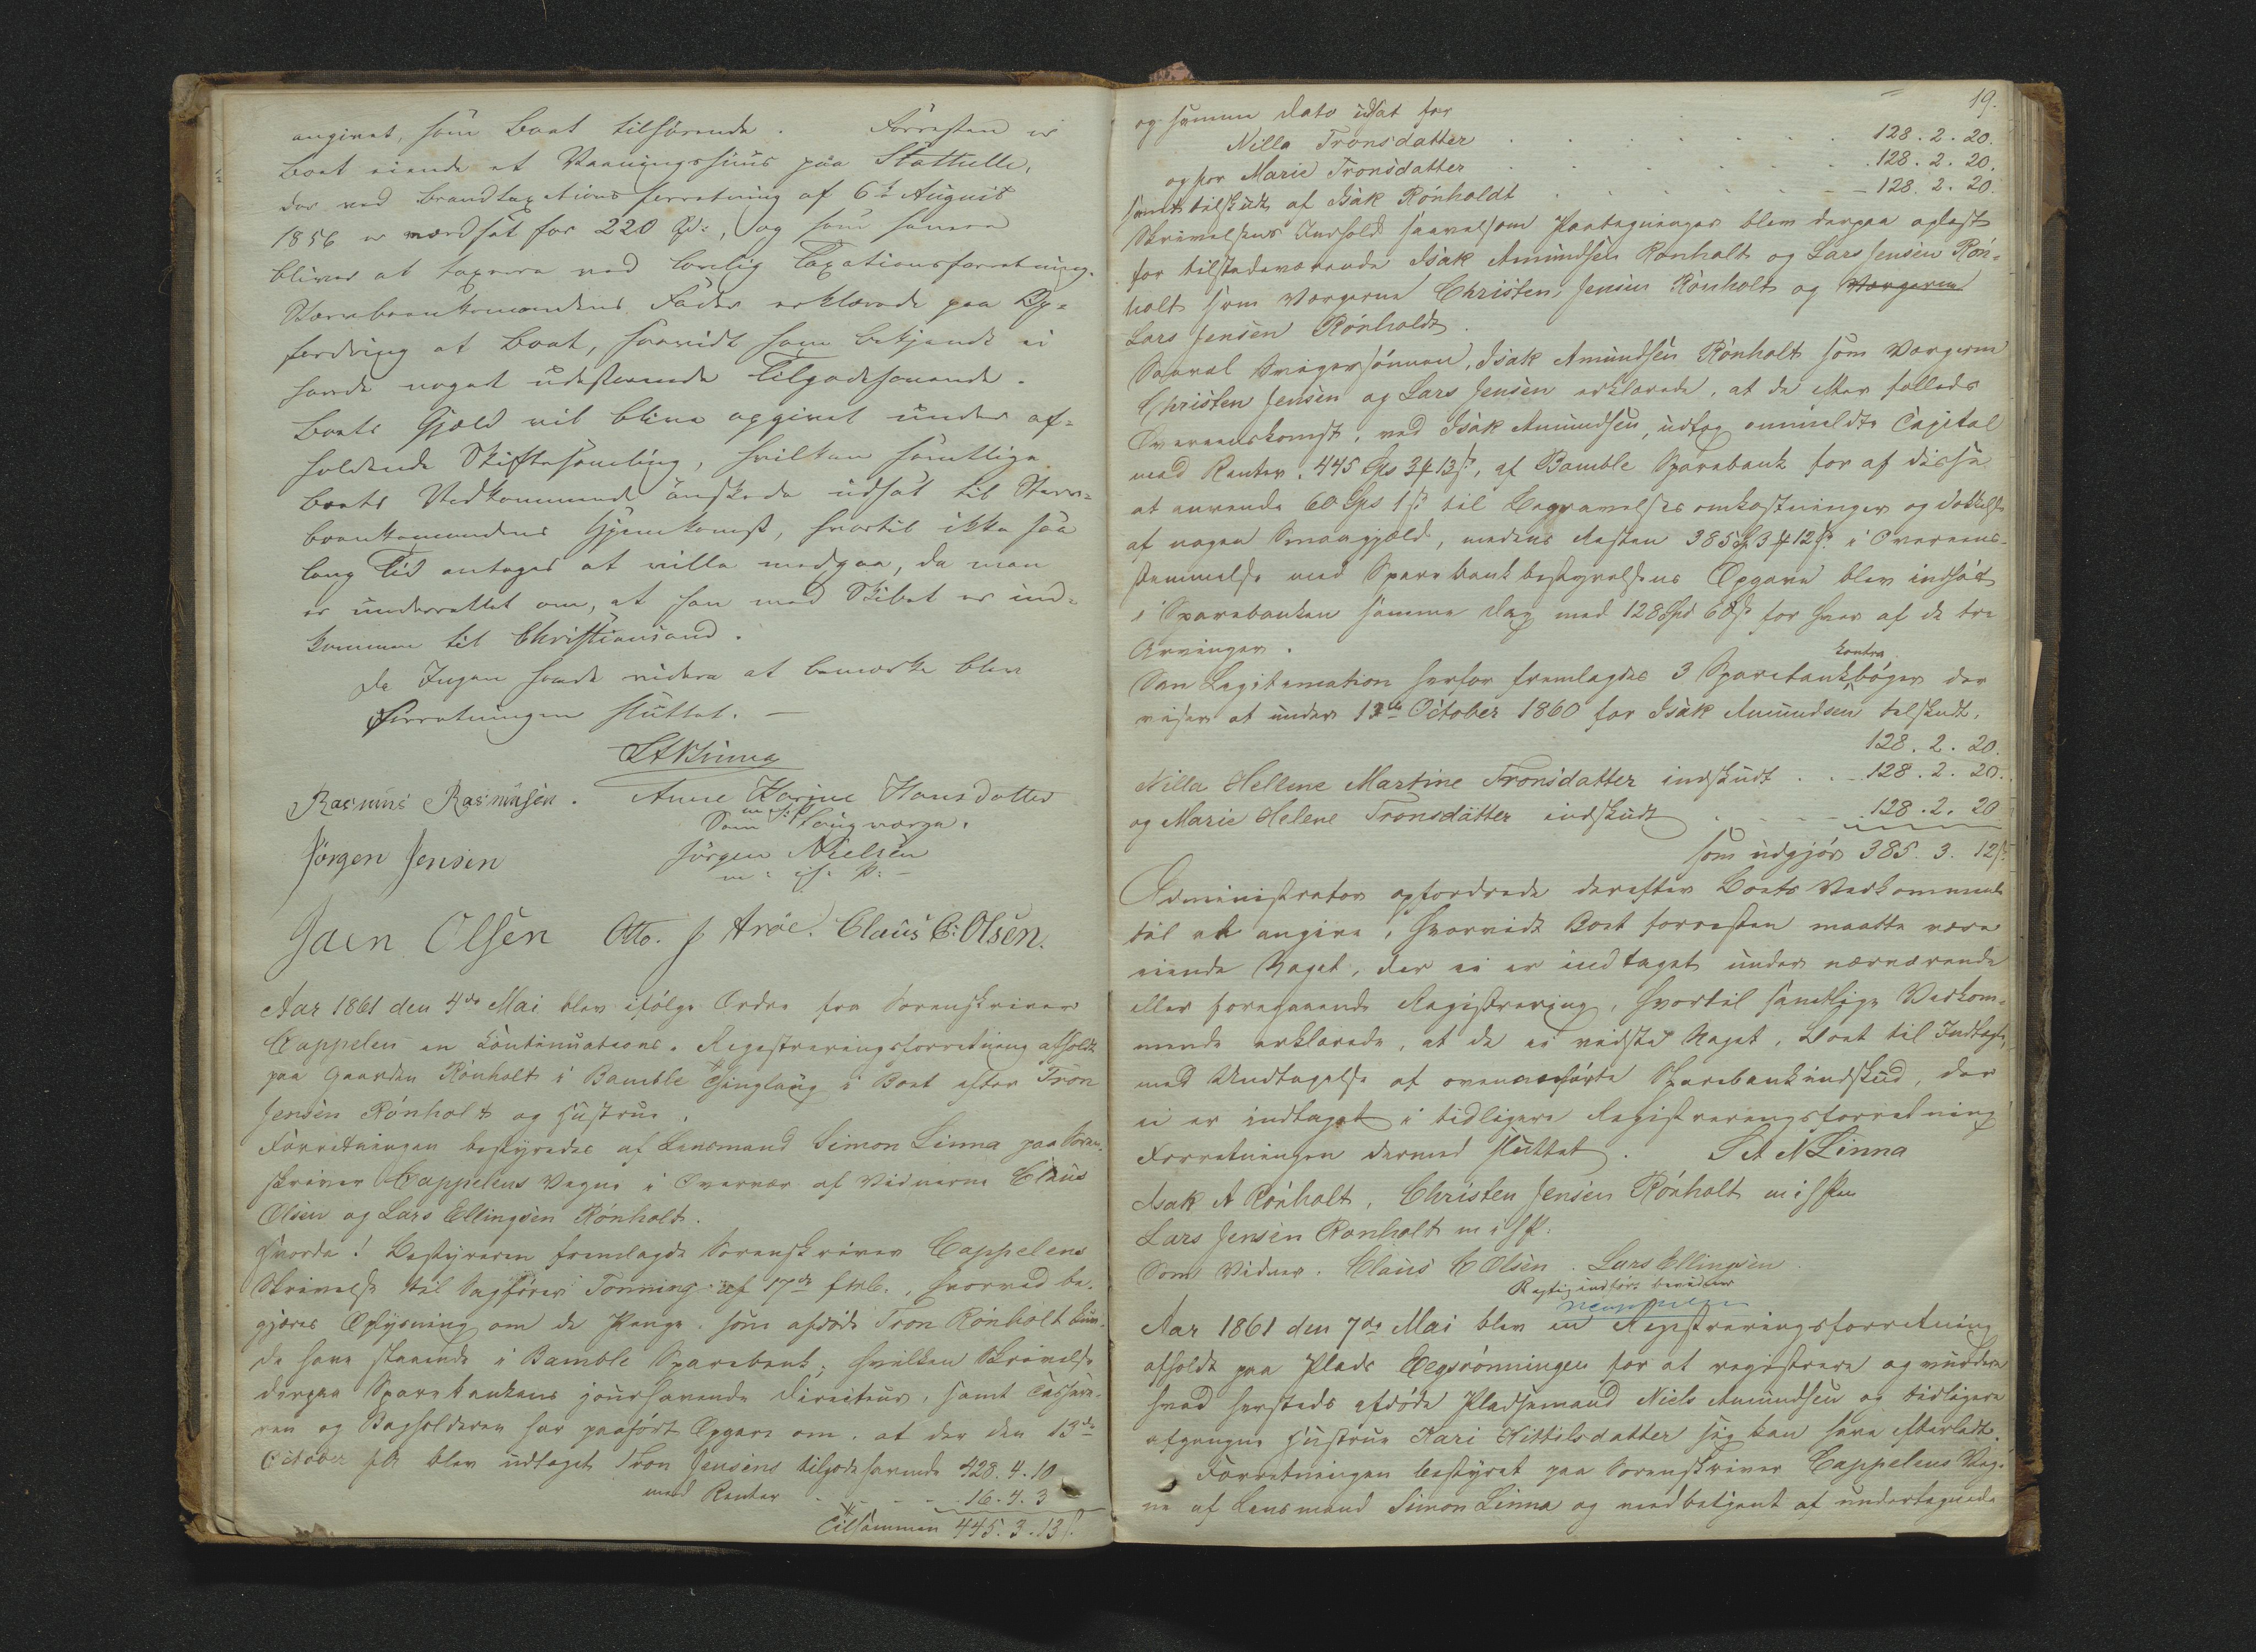 angivet, som Boet tilhörende. Forresten er
Boet eiende et Vaaningshuus paa Stathelle,
der ved Brandtaxationsforretning af 6te August
1856 er værdsat for 220 Spd:, og som senere
bliver at taxere ved lovlig Taxationsforretning.
Stervboenkemandens Fader erklærede paa Op-
fordring at Boet, saavidt ham bekjendt ei
havde noget udestaaende Tilgodehavende.
Boets Gjeld vil blive opgivet under af-
holdende Skiftesamling, hvilken samtlige
Boets Vedkommende önskede udsat til Sterv-
boenkemandens Hjemkomst, hvortil ikke saa
lang Tid antages at ville medgaa, da man
er underrettet om, at han med Skibet er ind-
kommen til Christiansand.
Da Ingen havde videre at bemærke blev
Forretningen sluttet. —
Rasmus Rasmusen. Anne Karine Hansdatter
Som Laugværge.
Jörgen Jensen Jörgen Nielsen
m: i: P:
Jaen Olsen Otto. J Aröe. Claus C: Olsen.
Aar 1861 den 4de Mai blev ifölge Ordre fra Sorenskriver
Cappelen en Continuations-Registreringsforretning afholdt
paa Gaarden Rönholt i Bamble Thinglaug i Boet efter Tron
Jensen Rönholt og Hustrue.
Forretningen bestyredes af Lensmand Simon Linna paa Soren-
skriver Cappelens Vegne i Overvær af Vidnerne Claus
Olsen og Lars Ellingsen Rönholt.
Hvorda! Bestyreren fremlagde Sorenskriver Cappelens
Skrivelse til Sagförer Tonning af 17de , hvorved be-
gjæres Oplysning om de Penge som afdöde Tron Rönholt kun-
de have staaende i Bamble Sparebank, hvilken Skrivelse
derpaa Sparebankens jourhavende Directeur, samt Casserer-
ren og Bogholderen har paafört Opgave om, at der den 13de
October f. A. blev udtaget Tron Jensens tilgodehavende 428. 4. 10
med Renter . . . . 16. 4. 3
Tilsammen 445. 3. 13 s.
19.
og samme Dato udsat for
Nilla Tronsdatter . . . . . . 128. 2. 20.
og for Marie Tronsdatter . . . . . 128. 2. 20.
samt tilskudt af Isak Rönholdt . . . . 128. 2. 20.
Skrivelsens Indhold saavelsom Paategninger blev derpaa oplæst
for tilstedeværende Isak Amundsen Rönholt og Lars Jensen Rön-
holt som Værgerne Christen Jensen Rönholt og Værgerne
Lars Jensen Rönholdt.
Saavel Svigersönnen, Isak Amundsen Rönholt som Værgerne
Christen Jensen og Lars Jensen erklærede, at de efter fælleds
Overeenskomst, ved Isak Amundsen, udtog anmeldte Capital
med Renter, 445 Spd 3 ß 13 s, af Bamble Sparebank for af disse
at anvende 60 Spd 1 s til Begravelsesomkostninger og
af nogen Smaagjæld, medens Resten 385 Spd 3 ß 12 s i Overeens-
stemmelse med Sparebankbestyrelsens Opgave blev indsat
i Sparebanken samme Dag med 128 Spd 68 s for hver af de tre
Arvinger.
kontra
Som Legitimation herfor fremlagdes 3 Sparebankböger der
viser at under 13de October 1860 for Isak Amundsen tilskudt,
128. 2. 20.
Nilla Hellene Martine Tronsdatter indskudt . . 128. 2. 20.
og Marie Helene Tronsdatter indskudt . . . . 128. 2. 20
som udgjör 385. 3. 12 s.
Administrator opfordrede derefter Boets Vedkommende
til at angive, hvorvidt Boet forresten maatte være
eiende Noget, der ei er indtaget under nærværende
eller foregaaende Registrering, hvortil samtlige Vedkom-
mende erklærede, at de ei vidste Noget, Boet til Indtægt,
med Undtagelse af ovenanförte Sparebankindskud, der
ei er indtaget i tidligere Registreringsforretning
Forretningen dermed sluttet. S A N Linna
Isak A Rönholt, Christen Jensen Rönholt m i h P
Lars Jensen Rönholt m i h P.
Som Vidner. Claus C Olsen. Lars Ellingsen.
Rigtig indfört bevidner
Aar 1861 den 7de Mai blev en Registreringsforretning
afholdt paa Plads Eegsrönningen for at registrere og vurdere
hvad hersteds afdöde Pladsemand Niels Amundsen og tidligere
afgangne Hustrue Kari Kittilsdatter sig kan have efterladt.
Forretningen bestyret paa Sorenskriver Cappelens Veg-
ne af Lensmand Simon Linna og medbetjent af undertegnede